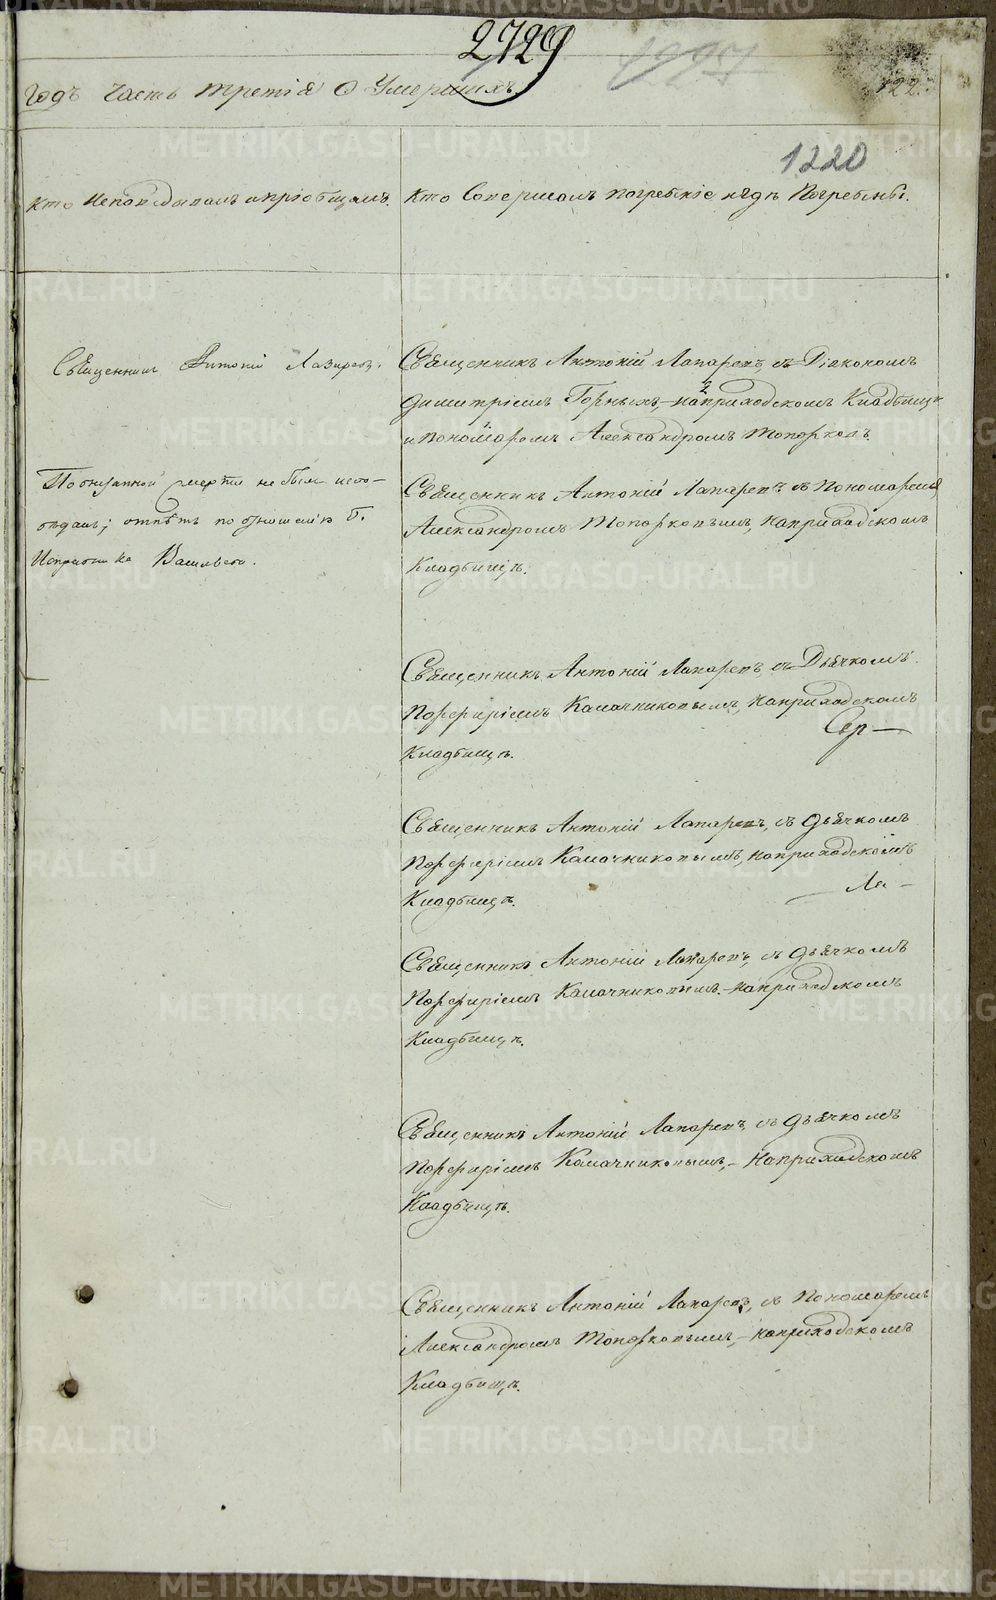 2729
122
Годъ Часть третія О Умершихъ.
1220
Кто исповѣдывалъ и пріобщалъ.
Кто Совершалъ погребеніе и гдѣ Погребены.
Священникъ Антоній Лазаревъ.
Священникъ Антоній Лазаревъ, съ Діакономъ
Димитріемъ Горныхъ, на приходскомъ Кладбищѣ
и пономаремъ Александромъ Топорковъ
По внезапной смерти не былъ испо-
вѣданъ; отпѣтъ по отношенію Г.
Исправника Васильева.
Священникъ Антоній Лазаревъ съ Пономаремъ
Александромъ Топорковымъ, на приходскомъ
Кладбищѣ.
Священникъ Антоній Лазаревъ, съ Дьячкомъ
Порфиріемъ Калачниковымъ, на приходскомъ
Сер—
Кладбищѣ.
Священникъ Антоній Лазаревъ, съ дьячкомъ
Порфиріемъ Калачниковымъ, на приходскомъ
— Ла —
Кладбищѣ.
Священникъ Антоній Лазаревъ, съ дьячкомъ
Порфиріемъ Калачниковымъ.—на приходскомъ
Кладбищѣ.
Священникъ Антоній Лазаревъ, съ дьячкомъ
Порфиріемъ Калачниковымъ,— на приходскомъ
Кладбищѣ.
Священникъ Антоній Лазаревъ, съ Пономаремъ
Александромъ Топорковымъ,—на приходскомъ
Кладбищѣ.
METRIKI.GASO-URAL.RU